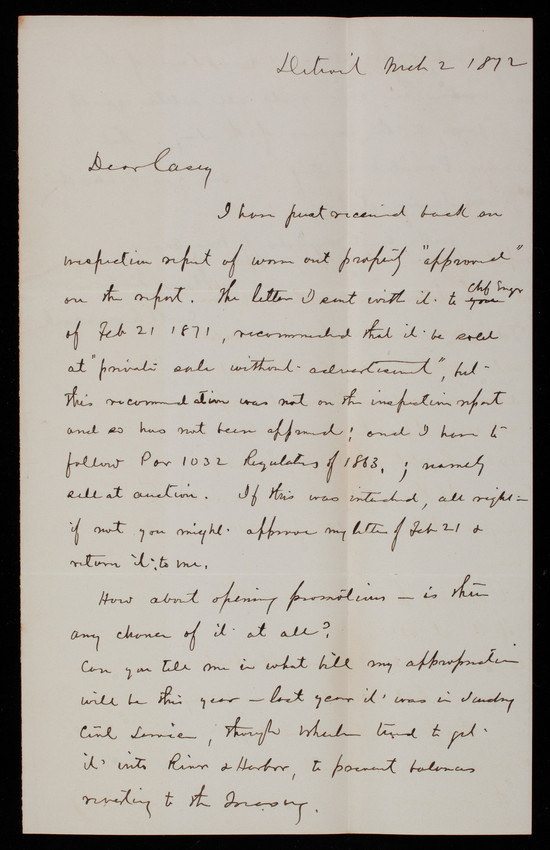 Detroit Mch 2 1872
Dear Casey
I have just received back an
inspection report of worn out property "approved"
on the report. The letter I sent with it to Chf Engr
of Feb 21 1871, recommended that it be sold
at "private sale without advertisement", but
this recommendation was not on the inspection report
and so has not been approved; and I have to
follow Par 1032 Regulations of 1863, ; namely
sell at auction. If this was intended, all right -
if not you might approve my letter of Feb 21 &
return it to me.
How about opening promotions - is there
any chance of it at all?
Can you tell me in what bill my appropriation
will be this year - last year it was in Sundry
Civil Service, though Wheeler tried to get
it into River & Harbor, to prevent balances
reverting to the Treasury.